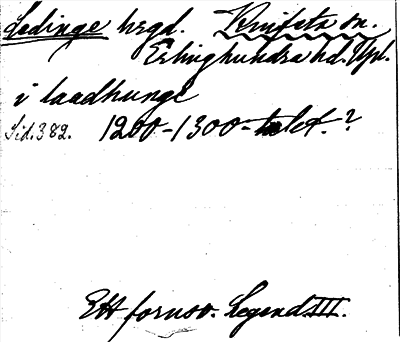 Ladinge hrgd. Knifsta sn.
Erlinghundra hd. Upl.
i laadhunge
Sid. 382. 1200-1300-talet.?
Ett fornsv. Legend. III.